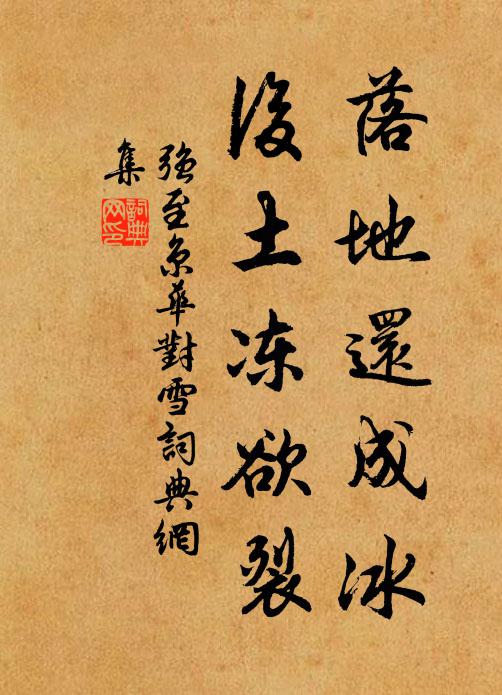 落地還成冰
後土冻欲裂
强至京華對雪詞典網
集
詞典
网印